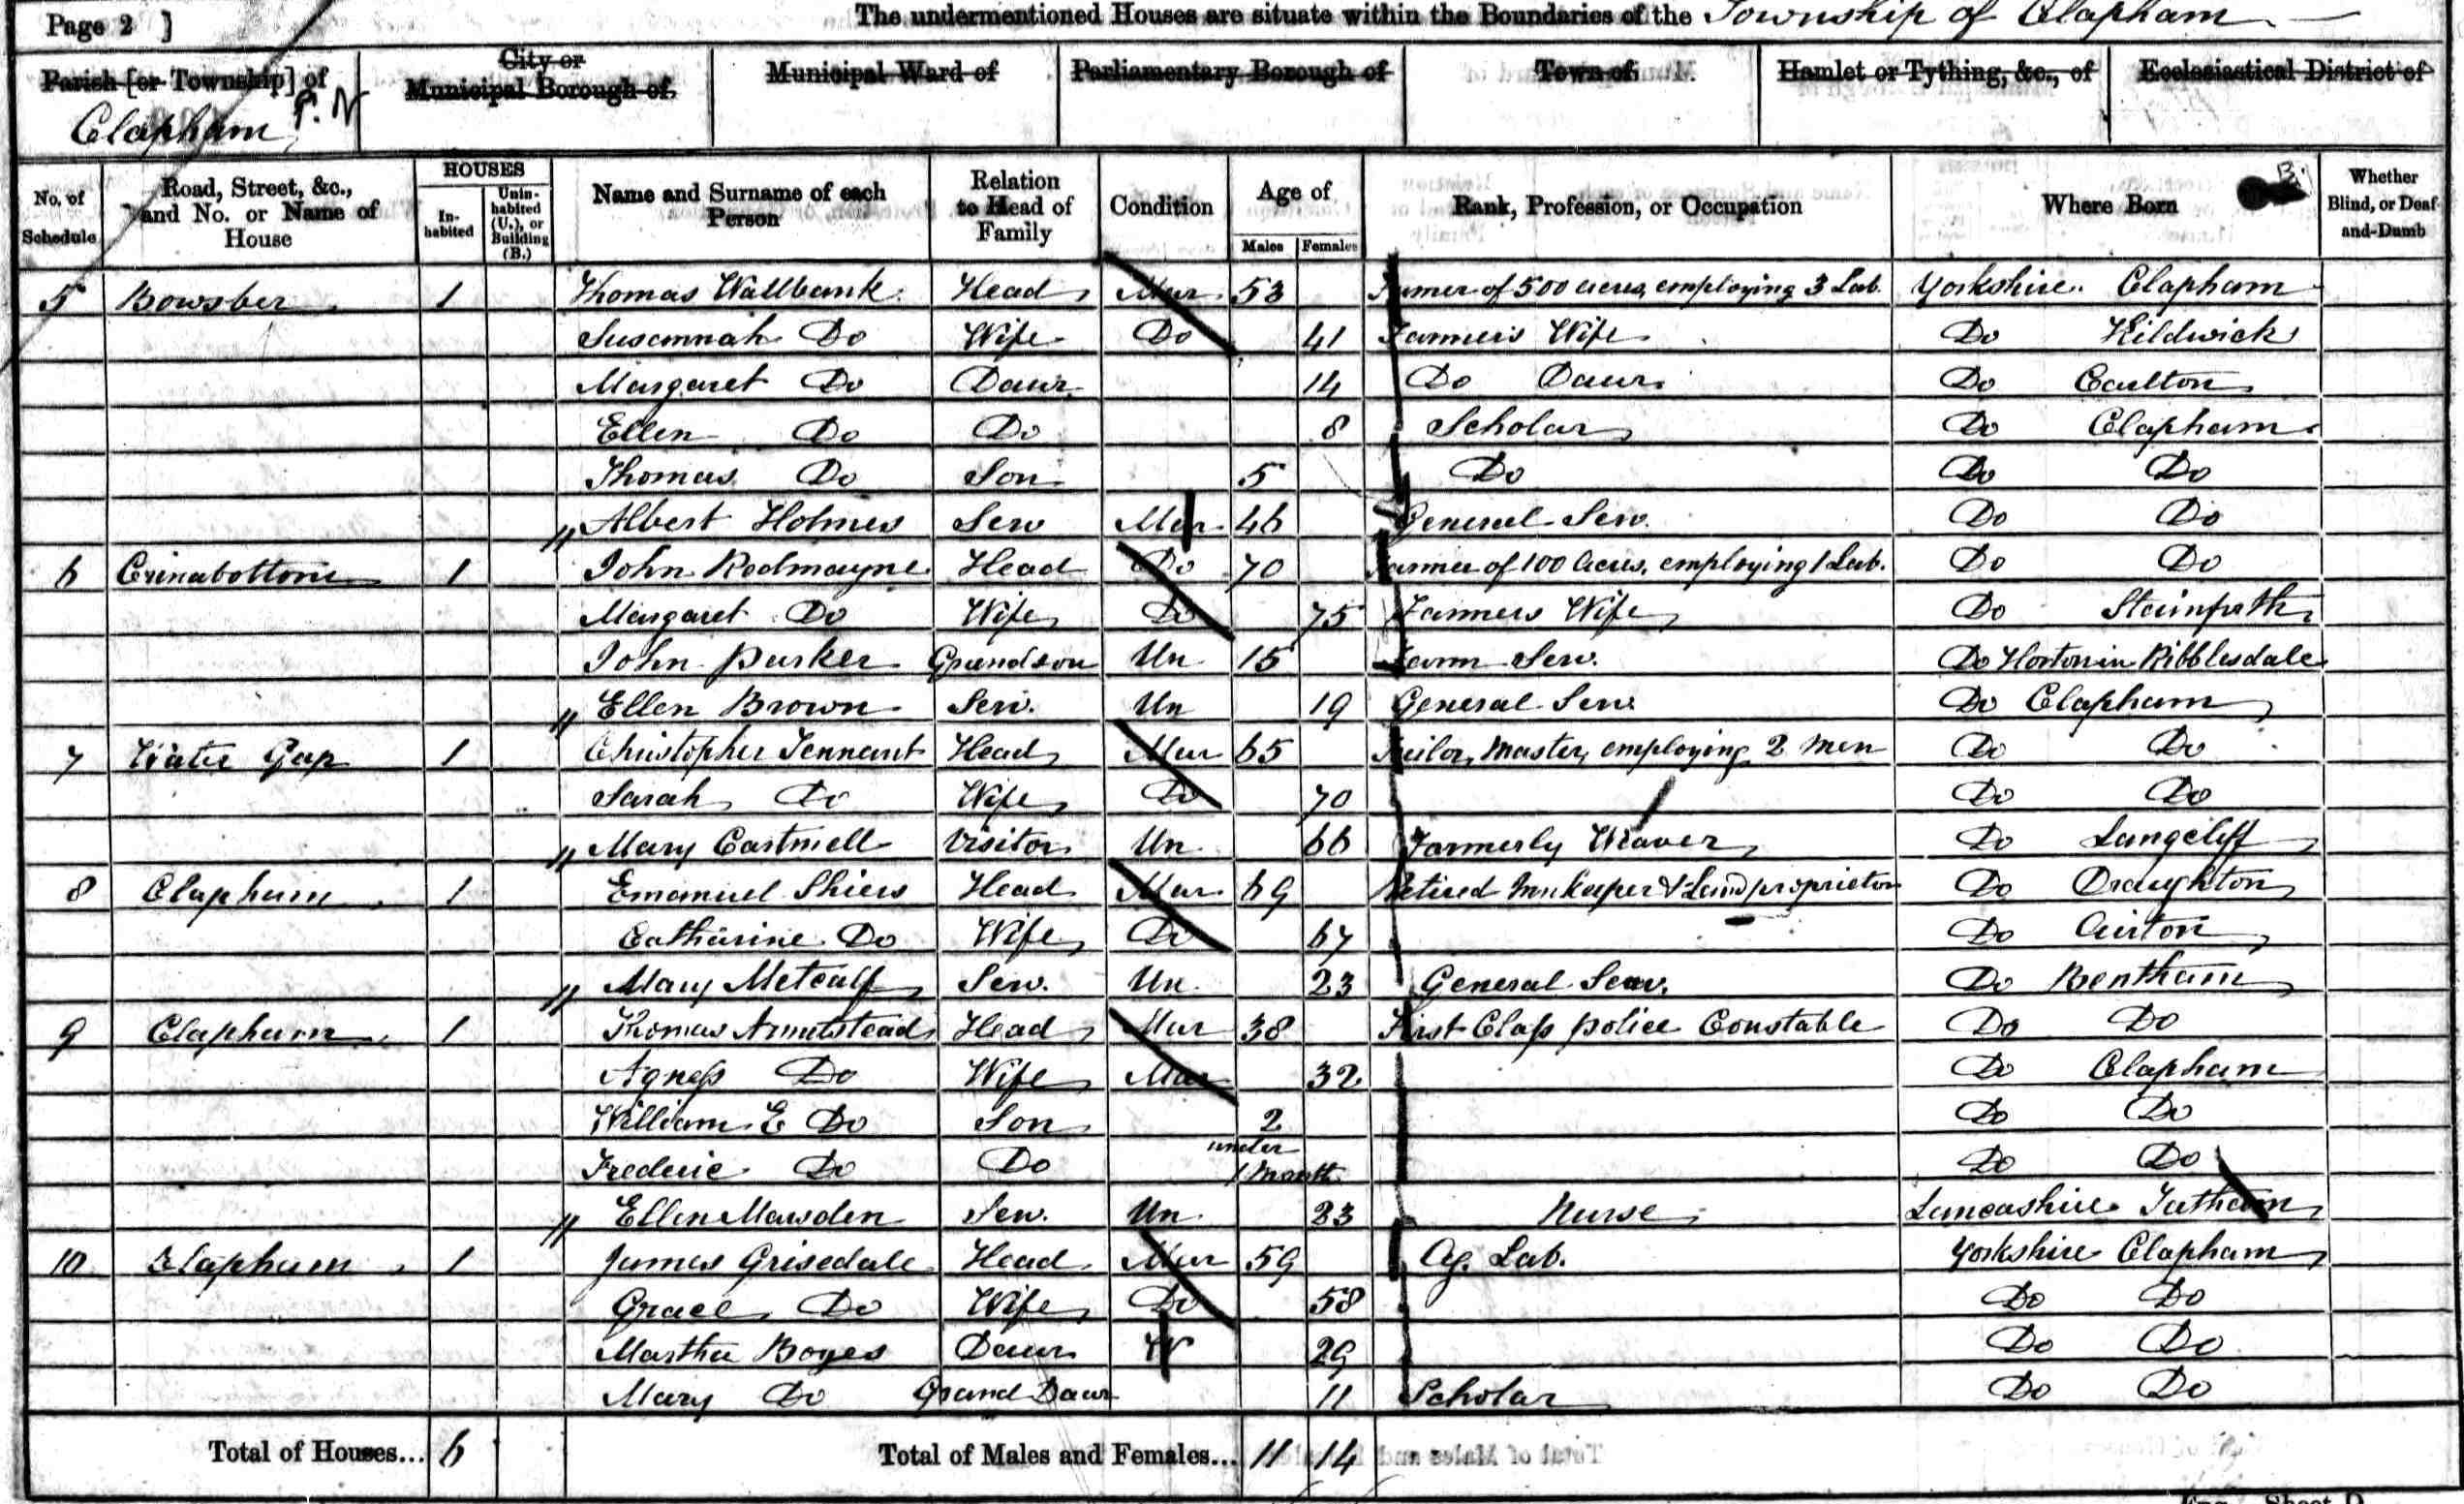 Page 2 ]
The undermentioned Houses are situate within the Boundaries of the Township of Clapham
Parish [or Township] of
Clapham P. N
City or
Municipal Borough of
Municipal Ward of
Parliamentary Borough of
Town of
Hamlet or Tything, &c., of
Ecclesiastical District of
No. of Schedule
Road, Street, &c., and No. or Name of House
HOUSES
In-habited
Unin-habited (U.), or Building (B.)
Name and Surname of each Person
Relation to Head of Family
Condition
Age of
Males
Females
Rank, Profession, or Occupation
Where Born
Whether Blind, or Deaf-and-Dumb
5 Bowsber 1 Thomas Wallbank Head Mar 53 Farmer of 500 acres, employing 3 Lab. Yorkshire Clapham
Susannah Do Wife Do 41 Farmer's Wife Do Kildwick
Margaret Do Daur. 14 Do Daur. Do Caulton
Ellen Do Do 8 Scholar Do Clapham
Thomas Do Son 5 Do Do Do
Albert Holmes Serv Mar 46 General Serv. Do Do
6 Crinabottom 1 John Redmayne Head Do 70 Farmer of 100 Acres, employing 1 Lab. Do Do
Margaret Do Wife Do 75 Farmers Wife Do Stainforth
John Parker Grandson Un 15 Farm Serv. Do Horton in Ribblesdale
Ellen Brown Serv. Un 19 General Serv. Do Clapham
7 Gap 1 Christopher Tennant Head Mar 65 Tailor, Master, employing 2 Men Do Do
Sarah Do Wife Do 70 Do Do
Mary Cartmell Visitor Un 66 Formerly Weaver Do Langcliff
8 Clapham 1 Emanuel Shiers Head Mar 69 Retired Innkeeper & Land proprietor Do Draughton
Catharine Do Wife Do 67 Do Airton
Mary Metcalf Serv. Un 23 General Serv. Do Bentham
9 Clapham 1 Thomas Armitstead Head Mar 38 First Class police Constable Do Do
Agness Do Wife Mar 32 Do Clapham
William E Do Son 2 Do Do
Frederic Do Do under 1 Month Do Do
Ellen Mawsden Serv. Un 23 Nurse Lancashire Tatham
10 Clapham 1 James Grisedale Head Mar 59 Ag. Lab. Yorkshire Clapham
Grace Do Wife Do 58 Do Do
Martha Boyes Daur. W 29 Do Do
Mary Do Grand Daur 11 Scholar Do Do
Total of Houses... 6
Total of Males and Females... 11 14
Eng.—Sheet D.